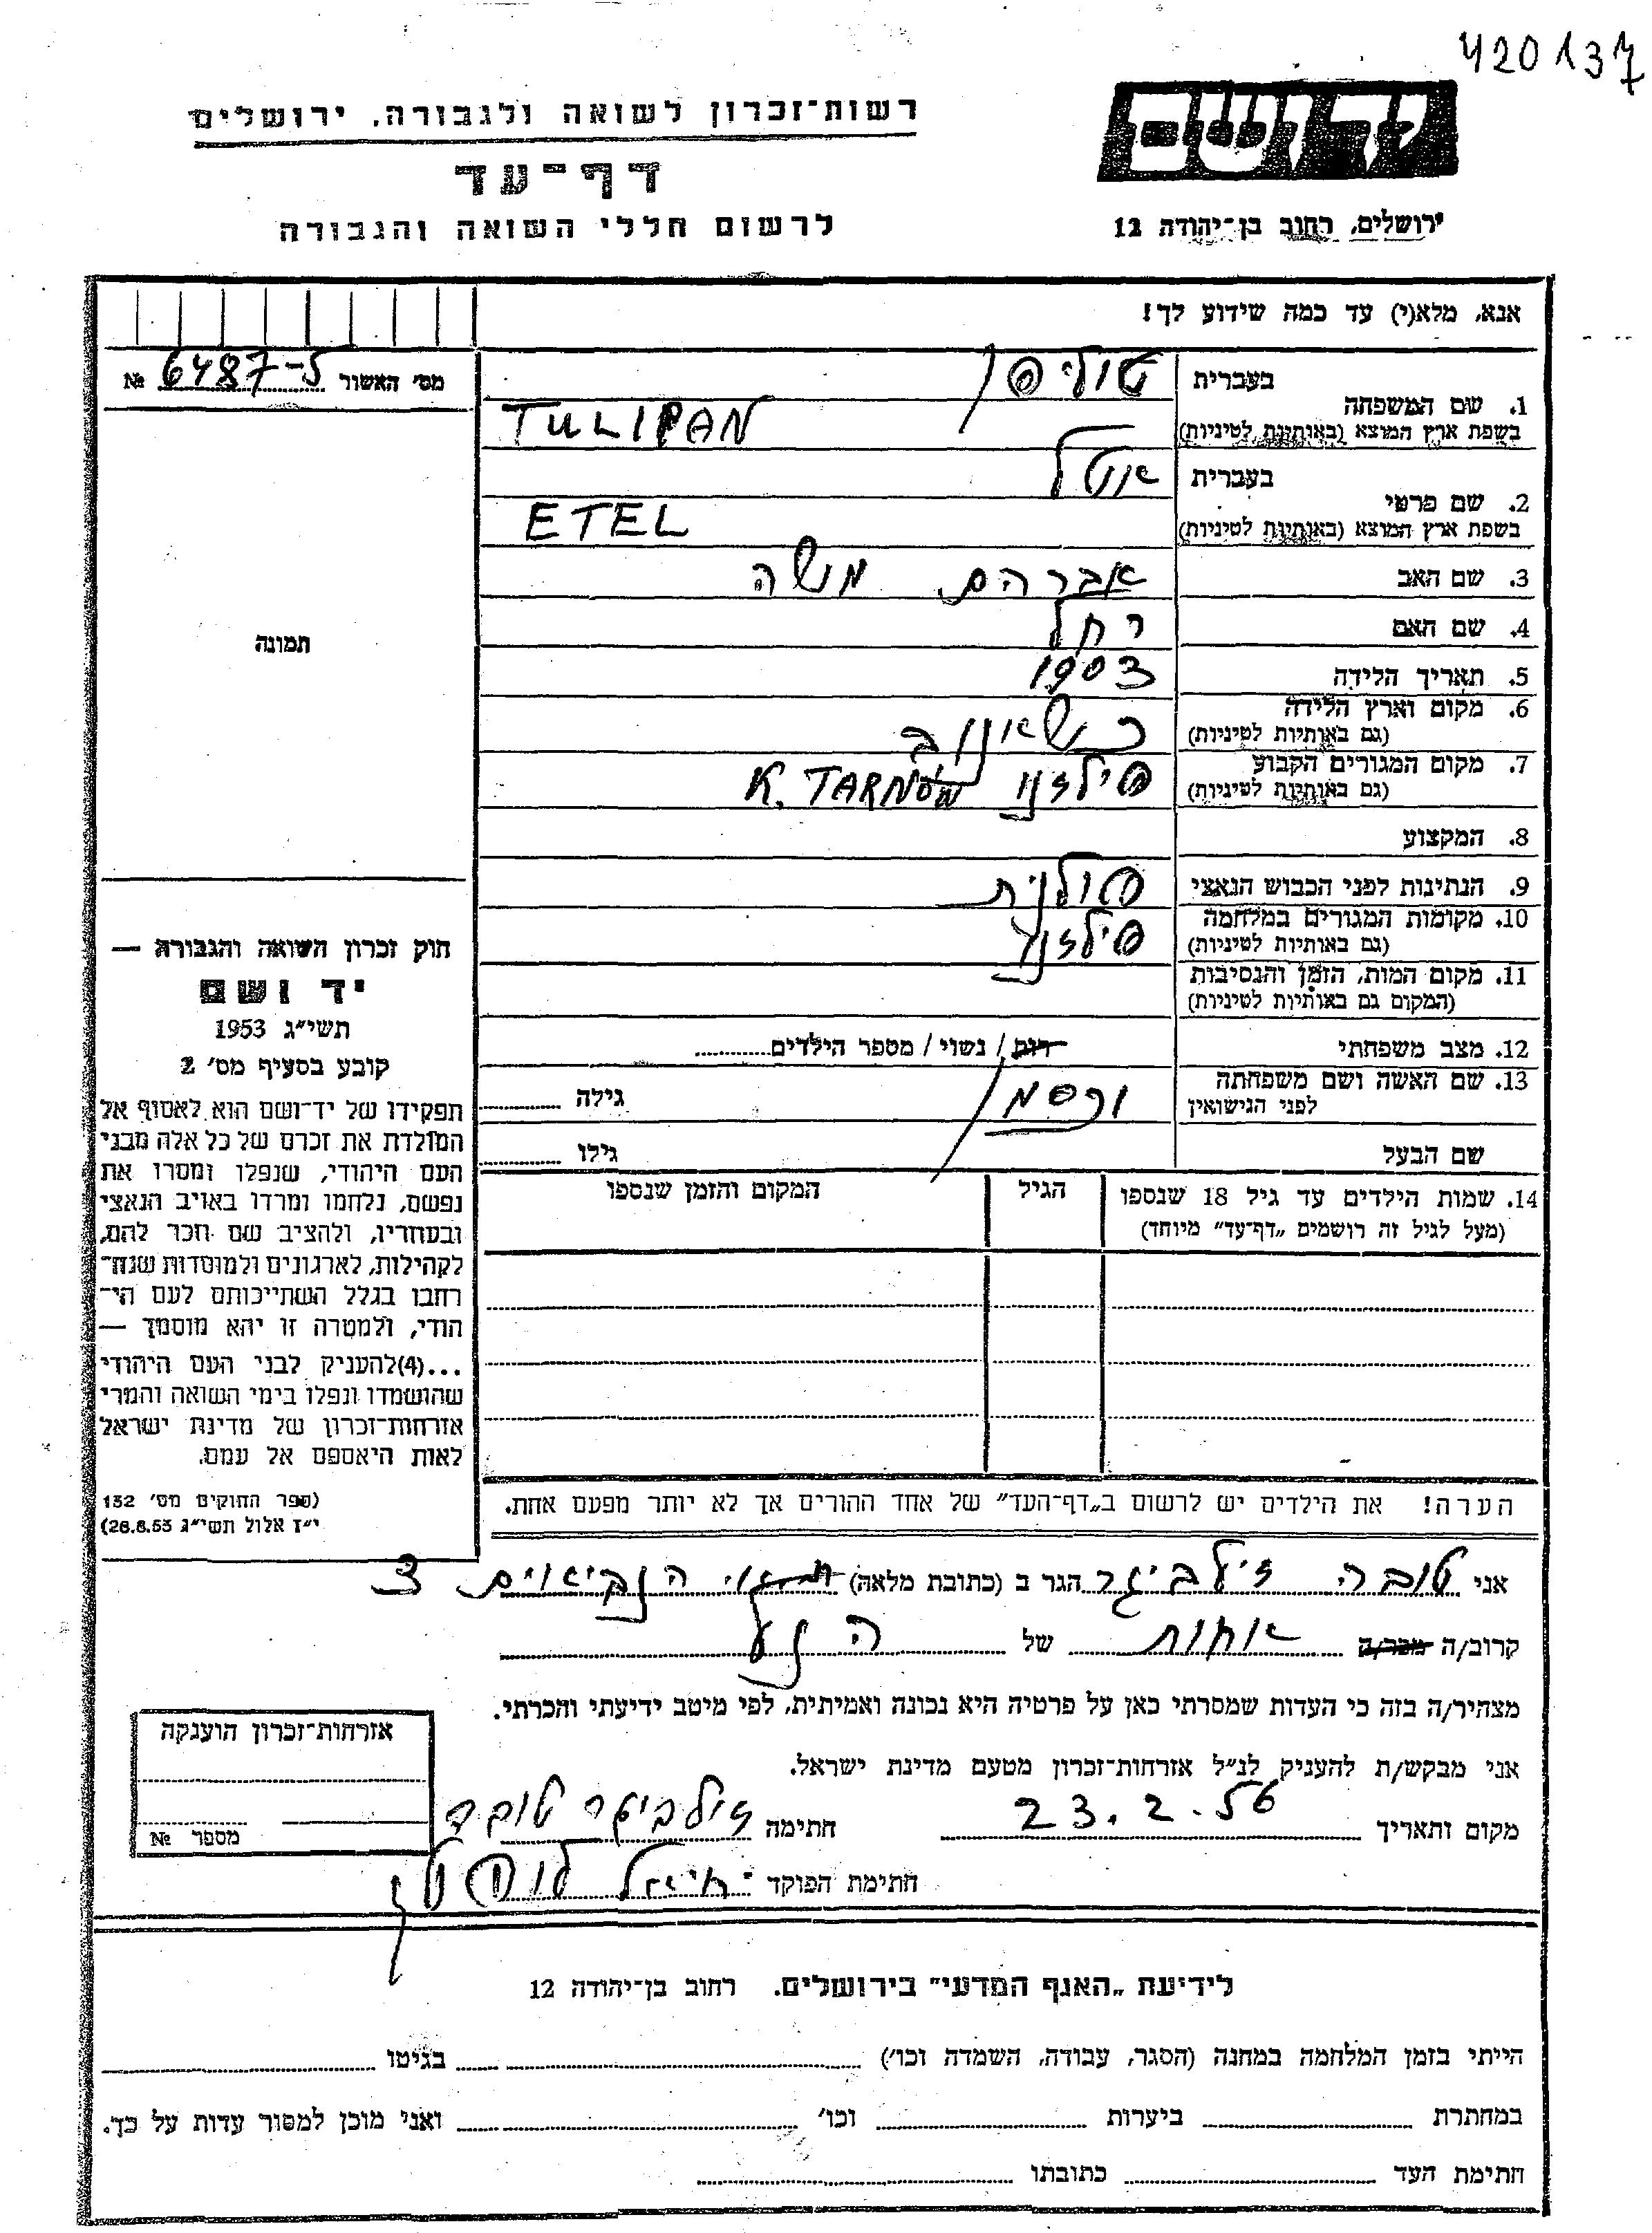 420137
יד ושם
רשות־זכרון לשואה ולגבורה, ירושלים
דף־עד
לרשום חללי השואה והגבורה
ירושלים, רחוב בן־יהודה 12
אנא, מלא(י) עד כמה שידוע לך!
מס׳ האשור 6487-5 №
תמונה
1. שם המשפחה
בעברית טוליפן
בשפת ארץ המוצא (באותיות לטיניות) TULIPAN
2. שם פרטי
בעברית אטל
בשפת ארץ המוצא (באותיות לטיניות) ETEL
3. שם האב אברהם משה
4. שם האם רחל
5. תאריך הלידה 1903
6. מקום וארץ הלידה
(גם באותיות לטיניות)
7. מקום המגורים הקבוע פילזנו K. TARNÓW
(גם באותיות לטיניות)
8. המקצוע
9. הנתינות לפני הכבוש הנאצי פולנית
10. מקומות המגורים במלחמה פילזנו
(גם באותיות לטיניות)
11. מקום המות, הזמן והנסיבות
(המקום גם באותיות לטיניות)
12. מצב משפחתי רוק / נשוי / מספר הילדים
13. שם האשה ושם משפחתה
לפני הנישואין גילה
שם הבעל גילו
14. שמות הילדים עד גיל 18 שנספו הגיל המקום והזמן שנספו
(מעל לגיל זה רושמים „דף־עד״ מיוחד)
הערה! את הילדים יש לרשום ב„דף־העד״ של אחד ההורים אך לא יותר מפעם אחת.
חוק זכרון השואה והגבורה —
יד ושם
תשי״ג 1953
קובע בסעיף מס׳ 2
תפקידו של יד־ושם הוא לאסוף אל
המולדת את זכרם של כל אלה מבני
העם היהודי, שנפלו ומסרו את
נפשם, נלחמו ומרדו באויב הנאצי
ובעוזריו, ולהציב שם וזכר להם,
לקהילות, לארגונים ולמוסדות שנח־
רבו בגלל השתייכותם לעם הי־
הודי, ולמטרה זו יהא מוסמך —
...(4)להעניק לבני העם היהודי
שהושמדו ונפלו בימי השואה והמרי
אזרחות־זכרון של מדינת ישראל
לאות היאספם אל עמם.
(ספר החוקים מס׳ 132
י״ז אלול תשי״ג 28.8.53)
אני טובה זילביגר הגר ב (כתובת מלאה) הנביאים 3
קרוב/ה מכר/ה אחות של הנ״ל
מצהיר/ה בזה כי העדות שמסרתי כאן על פרטיה היא נכונה ואמיתית, לפי מיטב ידיעתי והכרתי.
אני מבקש/ת להעניק לנ״ל אזרחות־זכרון מטעם מדינת ישראל.
מקום ותאריך 23.2.56 חתימה זילביגר טובה
חתימת הפוקד
אזרחות־זכרון הוענקה
מספר №
לידיעת „האגף המדעי״ בירושלים. רחוב בן־יהודה 12
הייתי בזמן המלחמה במחנה (הסגר, עבודה, השמדה וכו׳) בגיטו
במחתרת ביערות וכו׳ ואני מוכן למסור עדות על כך.
חתימת העד כתובתו